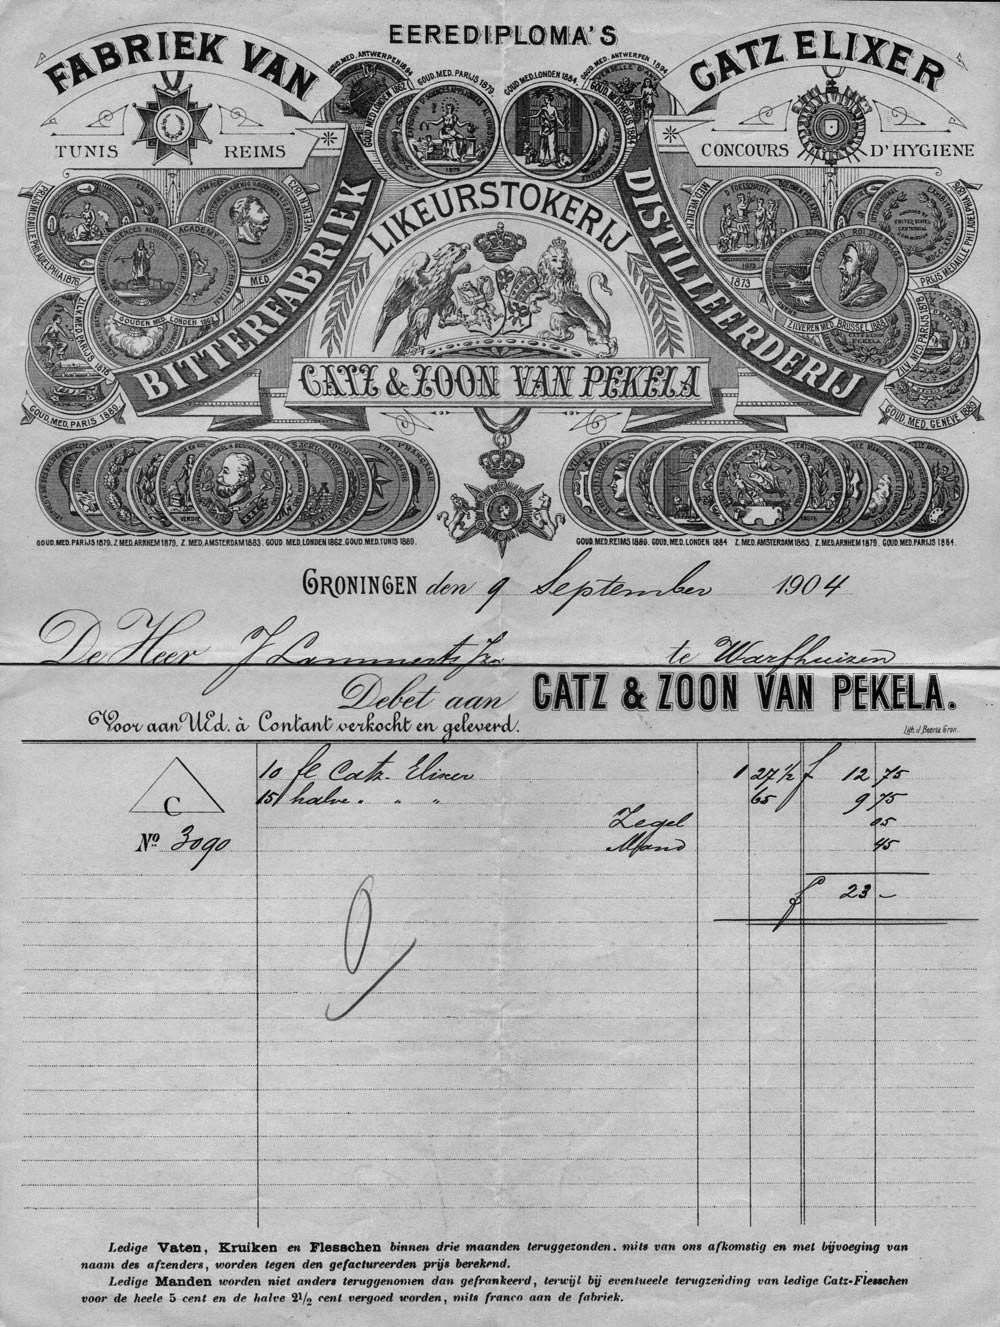 EEREDIPLOMA'S
FABRIEK VAN
CATZ ELIXER
TUNIS REIMS
CONCOURS D'HYGIENE
GOUD. MED. ANTWERPEN 1894
GOUD. MED. PARIJS 1879
GOUD. MED. LONDEN 1884
GOUD. MED. ANTWERPEN 1894
GOUD MED LONDEN 1862
GOUD. MED. PARIJS 1884
1879
BITTERFABRIEK
LIKEURSTOKERIJ
DISTILLEERDERIJ
CATZ & ZOON VAN PEKELA
PRIJS MEDAILLE PHILADELPHIA 1876.
WEENEN 1873
MED.
GOUDEN MED. LONDEN
ZILV. MED. PARIJS 1878
GOUD. MED. PARIS 1889
MED. WEENEN
1873
PRIJS MEDAILLE PHILADELPHIA
LEOPOLD II ROI DES BELGES
ZILVEREN MED. BRUSSEL 1888
ZILV. MED. PARIJS 1878
GOUD. MED. GENÈVE 1889
GOUD. MED. PARIJS 1879. Z. MED. ARNHEM 1879. Z. MED. AMSTERDAM 1883. GOUD. MED. LONDEN 1862. GOUD. MED. TUNIS 1889.
GOUD. MED. REIMS 1889. GOUD. MED. LONDEN 1884 Z. MED. AMSTERDAM 1883. Z. MED. ARNHEM 1879. GOUD. MED. PARIJS 1884.
GRONINGEN den 9 September 1904
De Heer J Lammerts Jzn te Warfhuizen
Debet aan CATZ & ZOON VAN PEKELA.
Voor aan UEd. à Contant verkocht en geleverd.
Lith. d. Boerse Gron.
10 fle Catz-Elixer 1 27 1/2 f 12 75
15 halve " " " 65 9 75
C
Zegel 05
No 3090 Mand 45
f 23 -
Ledige Vaten, Kruiken en Flesschen binnen drie maanden teruggezonden. mits van ons afkomstig en met bijvoeging van
naam des afzenders, worden tegen den gefactureerden prijs berekend.
Ledige Manden worden niet anders teruggenomen dan gefrankeerd, terwijl bij eventueele terugzending van ledige Catz-Flesschen
voor de heele 5 cent en de halve 2½ cent vergoed worden, mits franco aan de fabriek.